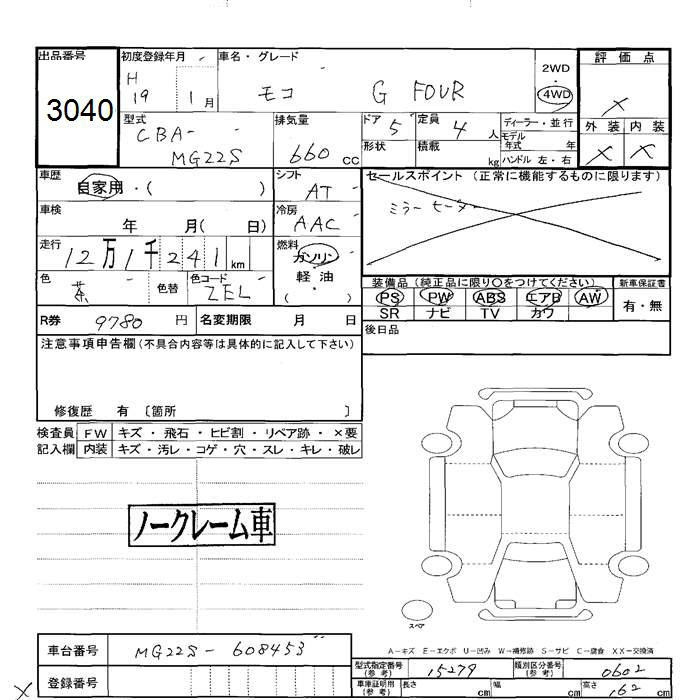 出品番号
3040
初度登録年月
H
19 1月
車名・グレード
モコ G FOUR
2WD
・
4WD
評価点
×
外装 内装
× ×
型式
CBA-
MG22S
排気量
660 cc
ドア 5
形状
定員 4 人
積載 kg
ディーラー・並行
モデル
年式 年
ハンドル 左・右
車歴
自家用・( )
シフト
AT
セールスポイント(正常に機能するものに限ります)
ミラーヒーター
車検
年 月( 日)
冷房
AAC
走行
12万1千241km
燃料
ガソリン
軽・油
( )
色
茶
色替
色コード
ZEL
装備品(純正品に限り○をつけてください)
PS PW ABS エアB AW
SR ナビ TV カワ
新車保証書
有・無
R券 9780 円
名変期限 月 日
後日品
注意事項申告欄(不具合内容等は具体的に記入して下さい)
修復歴 有 〔箇所 〕
検査員 FW キズ・飛石・ヒビ割・リペア跡・×要
記入欄 内装 キズ・汚レ・コゲ・穴・スレ・キレ・破レ
ノークレーム車
スペア
A-キズ E-エクボ U-凹み W-補修跡 S-サビ C-腐食 XX-交換済
車台番号 MG22S-608453
登録番号
型式指定番号
(参考)
15279
類別区分番号
(参考)
0602
車庫証明用
(参考)
長さ cm 幅 cm 高さ 162 cm
×